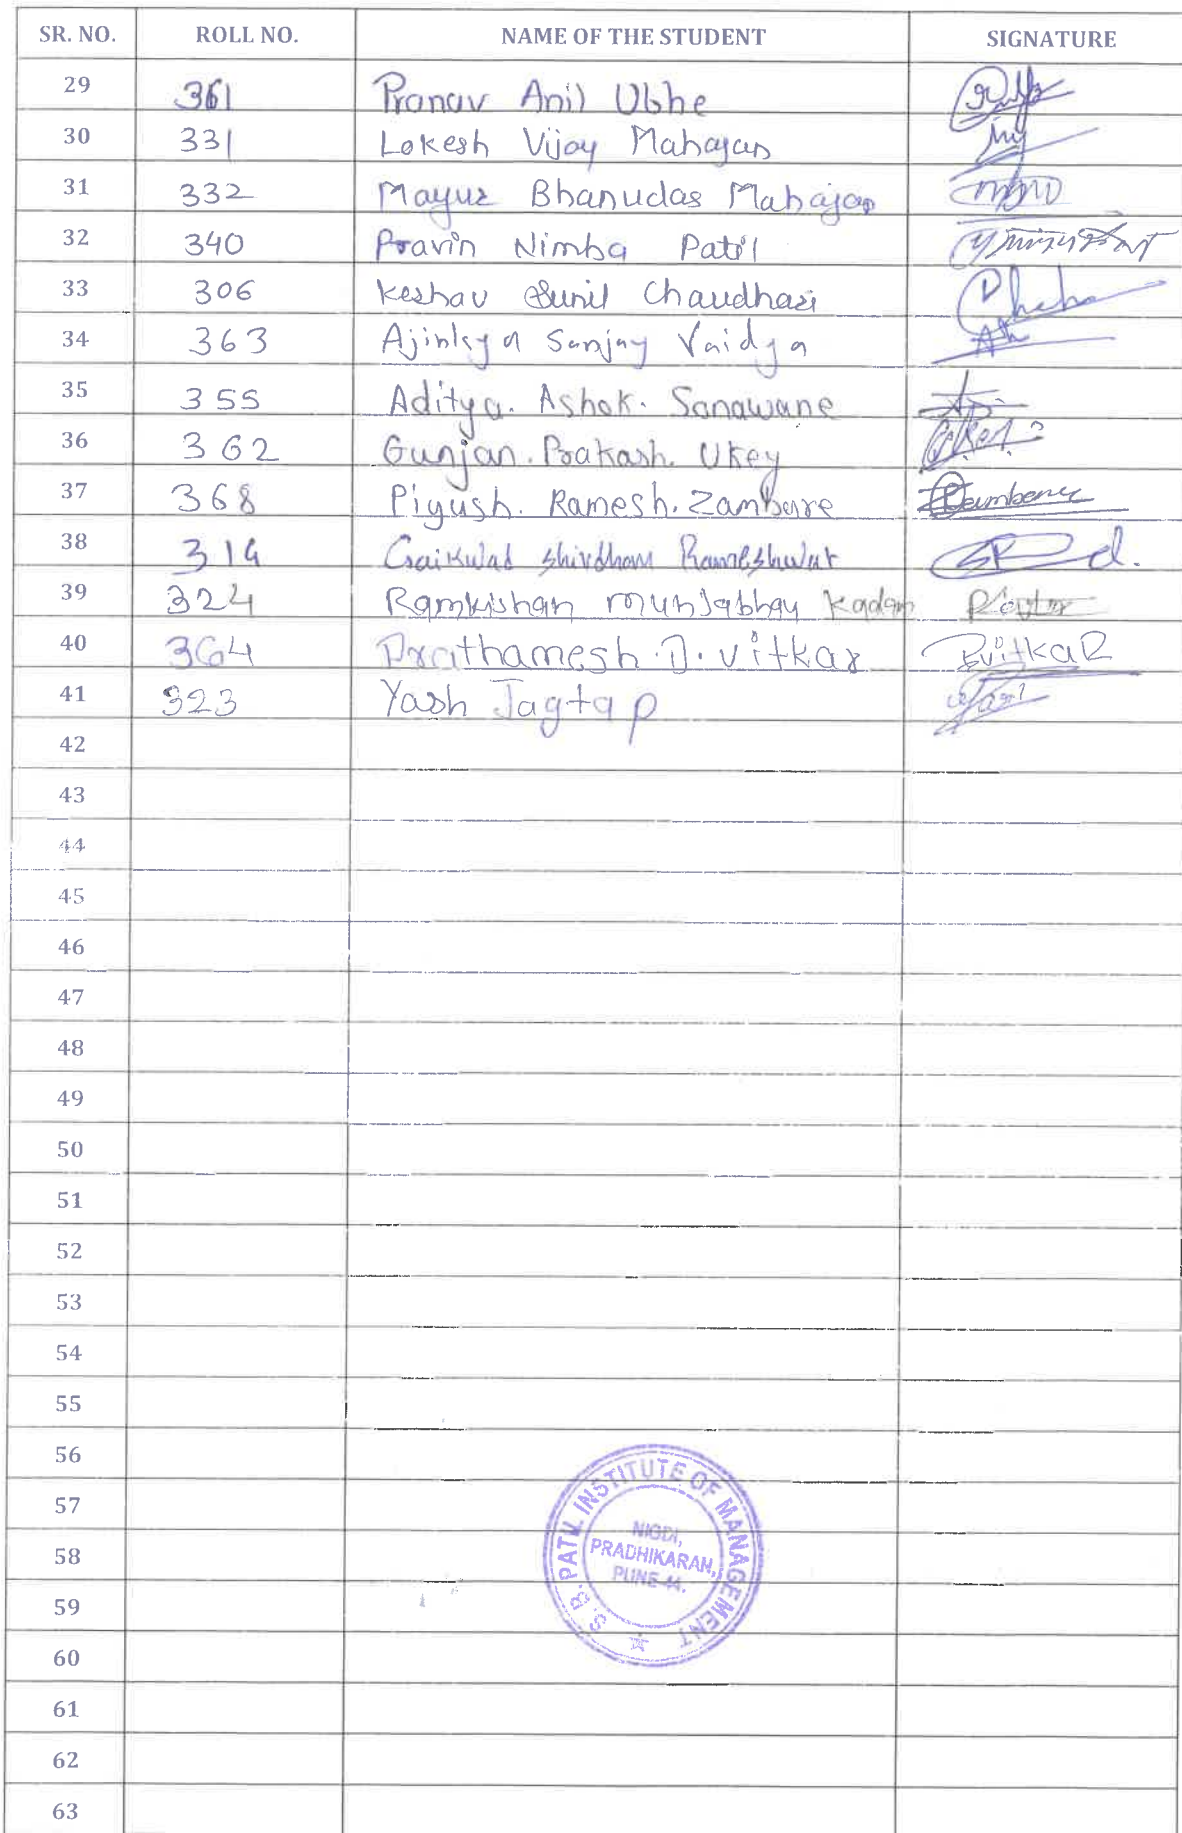 SR. NO. ROLL NO. NAME OF THE STUDENT SIGNATURE
29 361 Pranav Anil Ubhe
30 331 Lokesh Vijay Mahajan
31 332 Mayur Bhanudas Mahajan
32 340 Pravin Nimba Patil
33 306 Keshav Sunil Chaudhari
34 363 Ajinkya Sanjay Vaidya
35 355 Aditya. Ashok. Sonawane
36 362 Gunjan. Prakash. Ukey
37 368 Piyush. Ramesh. Zambare
38 314 Gaikwad Shivdham Rameshwar
39 324 Ramkishan munjabhay Kadam
40 364 Prathamesh .D. vitkar PvitkaR
41 323 Yash Jagtap
42
43
44
45
46
47
48
49
50
51
52
53
54
55
56
57
58
59
60
61
62
63
S. B. PATIL INSTITUTE OF MANAGEMENT
NIGDI,
PRADHIKARAN,
PUNE-44.